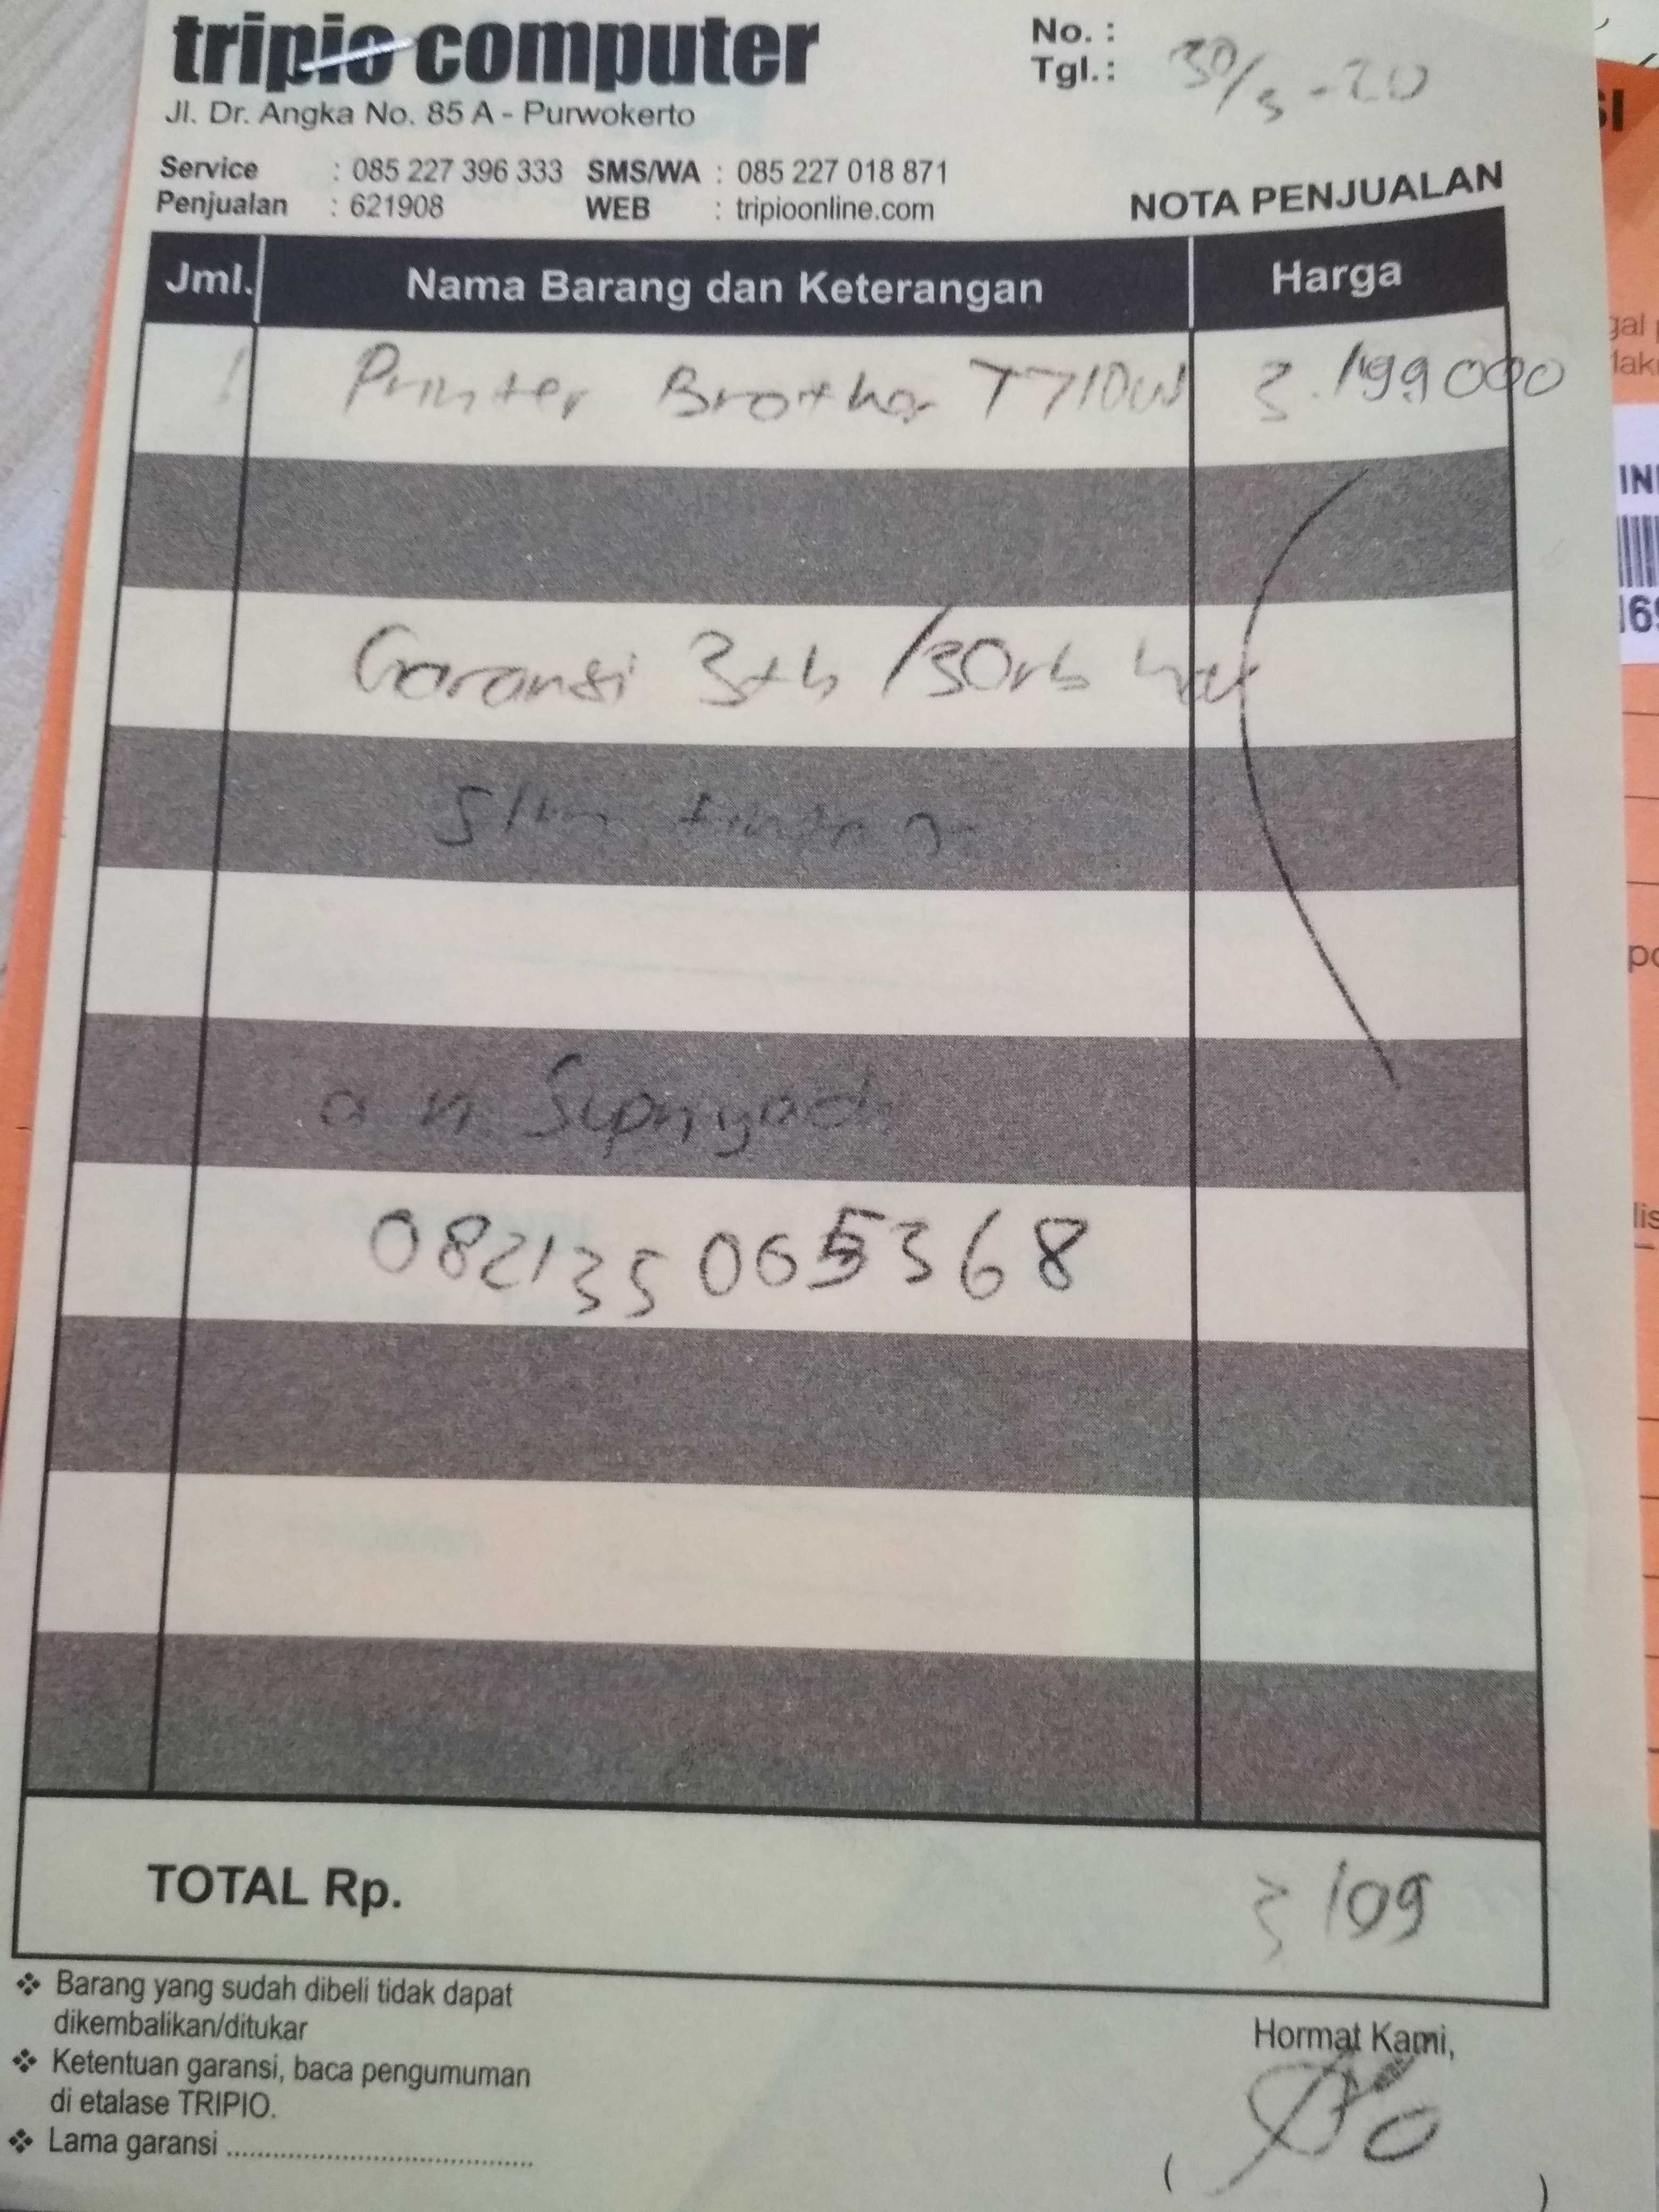 tripio computer
Jl. Dr. Angka No. 85 A - Purwokerto
No. :
Tgl. : 30/3-20
Service : 085 227 396 333 SMS/WA : 085 227 018 871
Penjualan : 621908 WEB : tripioonline.com
NOTA PENJUALAN
Jml. Nama Barang dan Keterangan Harga
1 Printer Brother T710W 3.199000
Garansi 3th /30rb
a n Supriyadi
082135065368
TOTAL Rp. 3 199
❖ Barang yang sudah dibeli tidak dapat
dikembalikan/ditukar
❖ Ketentuan garansi, baca pengumuman
di etalase TRIPIO.
❖ Lama garansi ..........................................
Hormat Kami,
( )
SI
gal
IN